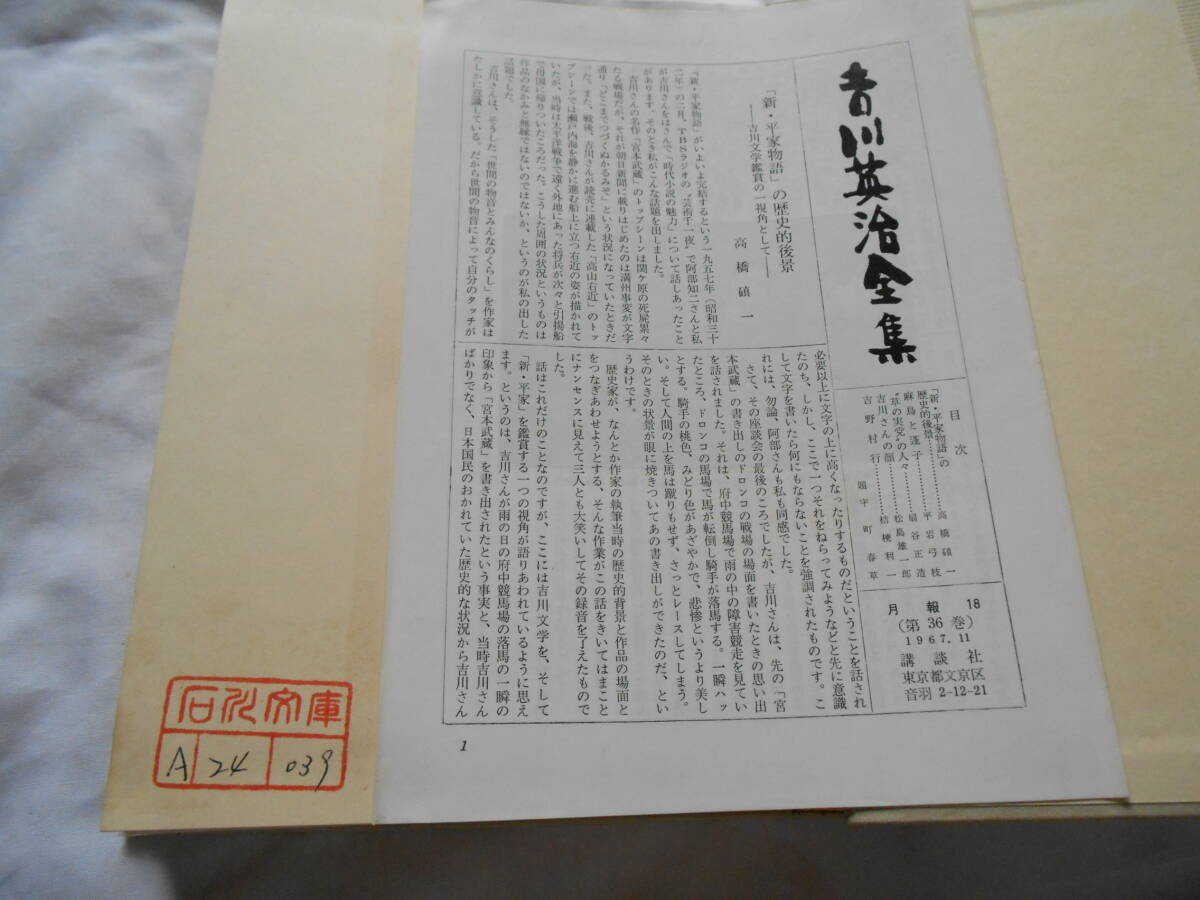 吉川英治全集
目次
「新・平家物語」の
歴史的後景…………高橋磌一
麻鳥と蓬子…………平岩弓枝
“草の実党”の人々……扇谷正造
吉川さんの顔…………松島雄一郎
吉野村行…………桔梗利一
題字 町春草
月報 18
(第36巻)
1967.11
講談社
東京都文京区
音羽 2-12-21
「新・平家物語」の歴史的後景
――吉川文学鑑賞の一視角として――
高橋磌一
「新・平家物語」がいよいよ完結するという一九五七年(昭和三十
二年)の二月、TBSラジオの“芸術千一夜”で阿部知二さんと私
が吉川さんをはさんで「時代小説の魅力」について話しあったこと
があります。そのとき私がこんな話題を出しました。
吉川さんの名作「宮本武蔵」のトップシーンは関ケ原の死屍累々
たる戦場だが、それが朝日新聞に載りはじめたのは満州事変が文字
通り「どこまでつづくぬかるみぞ」という状況になっていたときだ
った。また、戦後、吉川さんが読売に連載した「高山右近」のトッ
プシーンでは瀬戸内海を静かに進む船上に立つ右近の姿が描かれて
いたが、当時は太平洋戦争で遠く外地にあった将兵が次々と引揚船
で母国に帰りついたころだった。こうした周囲の状況というものは
作品のなかみと無縁ではないのではないか、というのが私の出した
話題でした。
吉川さんは、そうした「世間の物音とみんなのくらし」を作家は
たしかに意識している。だから世間の物音によって自分のタッチが
必要以上に文字の上に高くなったりするものだということを話され
たのち、しかし、ここで一つそれをねらってみようなどと先に意識
して文字を書いたら何にもならないことを強調されたものです。こ
れには、勿論、阿部さんも私も同感でした。
さて、その座談会の最後のころでしたが、吉川さんは、先の「宮
本武蔵」の書き出しのドロンコの戦場の場面を書いたときの思い出
を話されました。それは、府中競馬場で雨の中の障害競走を見てい
たところ、ドロンコの馬場で馬が転倒し騎手が落馬する。一瞬ハッ
とする。騎手の桃色、みどり色があざやかで、悲惨というより美し
い。そして人間の上を馬は蹴りもせず、さっとレースしてしまう。
そのときの状景が眼に焼きついてあの書き出しができたのだ、とい
うわけです。
歴史家が、なんとか作家の執筆当時の歴史的背景と作品の場面と
をつなぎあわせようとする、そんな作業がこの話をきいてはまこと
にナンセンスに見えて三人とも大笑いしてその録音を了えたもので
した。
話はこれだけのことなのですが、ここには吉川文学を、そして
「新・平家」を鑑賞する一つの視角が語りあわれているように思え
ます。というのは、吉川さんが雨の日の府中競馬場の落馬の一瞬の
印象から「宮本武蔵」を書き出されたという事実と、当時吉川さん
ばかりでなく、日本国民のおかれていた歴史的な状況から吉川さん
1
文庫
A 24 039